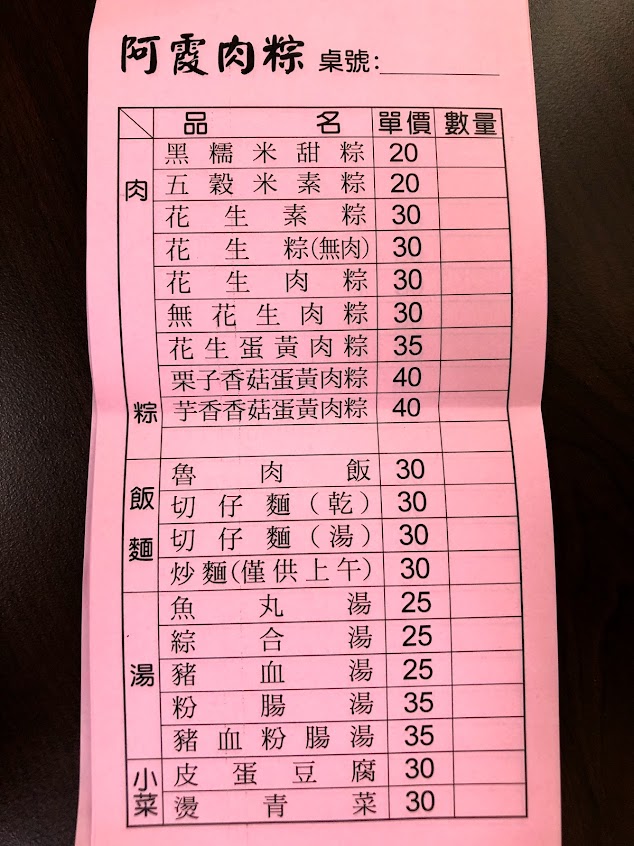 阿霞肉粽 桌號:
品名 單價 數量
肉粽
黑糯米甜粽 20
五穀米素粽 20
花生素粽 30
花生粽(無肉) 30
花生肉粽 30
無花生肉粽 30
花生蛋黃肉粽 35
栗子香菇蛋黃肉粽 40
芋香香菇蛋黃肉粽 40
飯麵
魯肉飯 30
切仔麵(乾) 30
切仔麵(湯) 30
炒麵(僅供上午) 30
湯
魚丸湯 25
綜合湯 25
豬血湯 25
粉腸湯 35
豬血粉腸湯 35
小菜
皮蛋豆腐 30
燙青菜 30